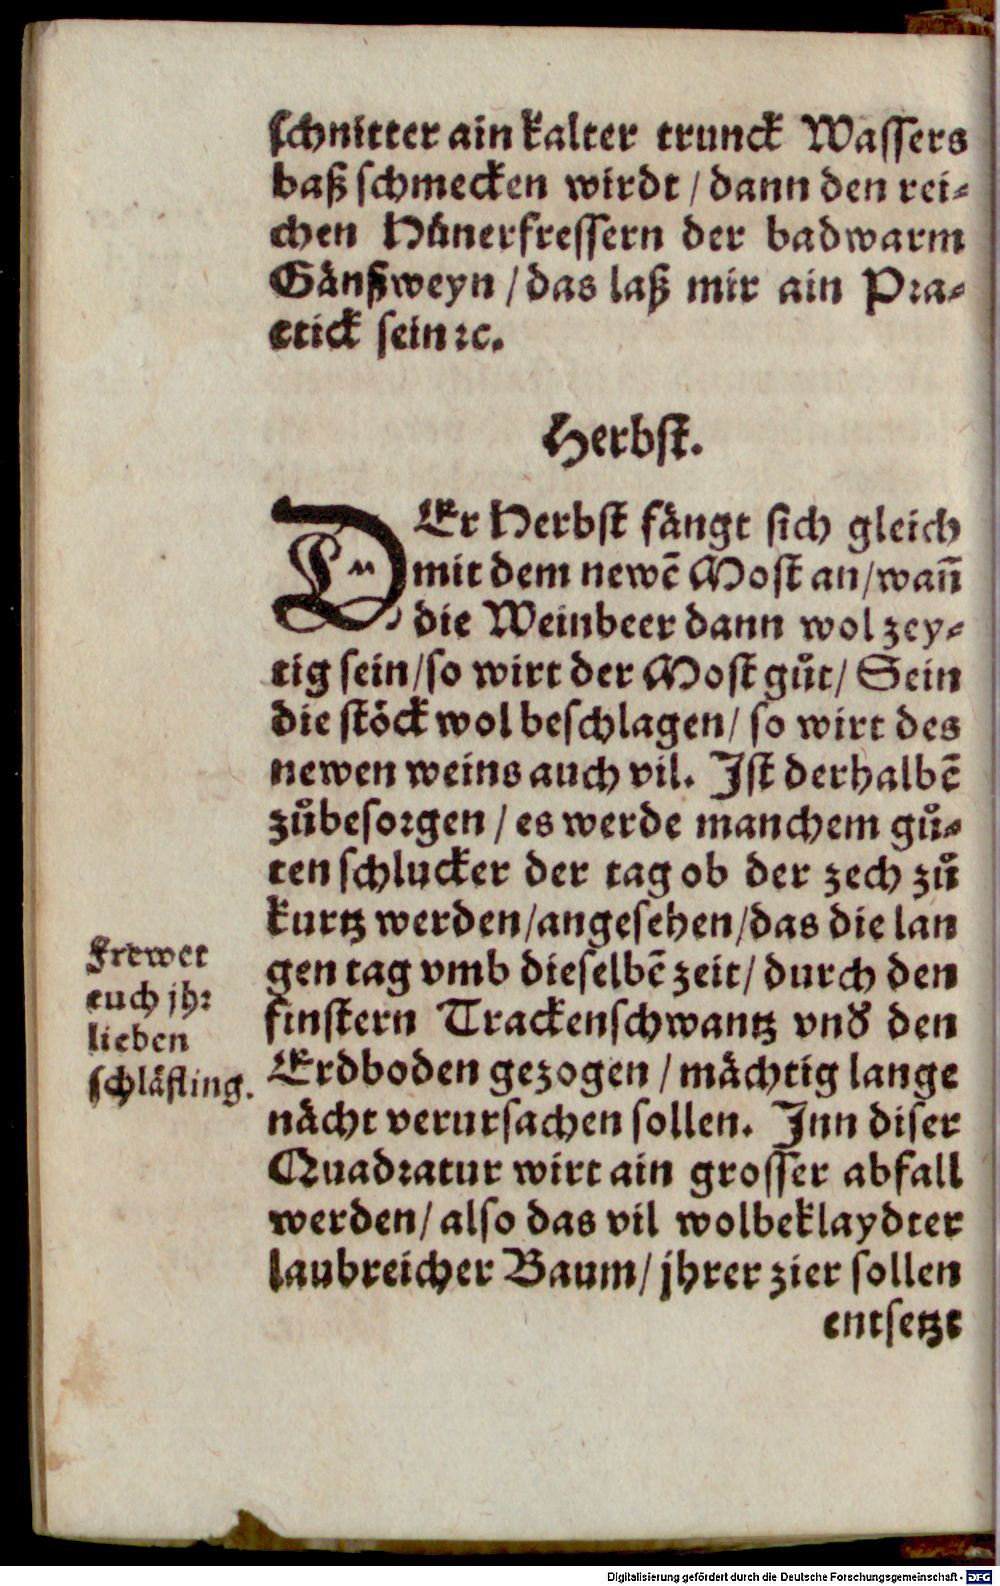 schnitter ain kalter trunck Wassers
baß schmecken wirdt / dann den rei-
chen Hünerfressern der badwarm
Gänßweyn / das laß mir ain Pra-
ctick sein ꝛc.
Herbst.
DEr Herbst fängt sich gleich
mit dem newẽ Most an / wañ
die Weinbeer dann wol zey-
tig sein / so wirt der Most gůt / Sein
die stöck wol beschlagen / so wirt des
newen weins auch vil. Ist derhalbẽ
zůbesorgen / es werde manchem gů-
ten schlucker der tag ob der zech zů
kurtz werden / angesehen / das die lan
gen tag vmb dieselbẽ zeit / durch den
finstern Trackenschwantz vnd den
Erdboden gezogen / mächtig lange
nächt verursachen sollen. Inn diser
Quadratur wirt ain grosser abfall
werden / also das vil wolbeklaydter
laubreicher Baum / jhrer zier sollen
entsetzt
Frewet
euch jhr
lieben
schläfling.
Digitalisierung gefördert durch die Deutsche Forschungsgemeinschaft - DFG